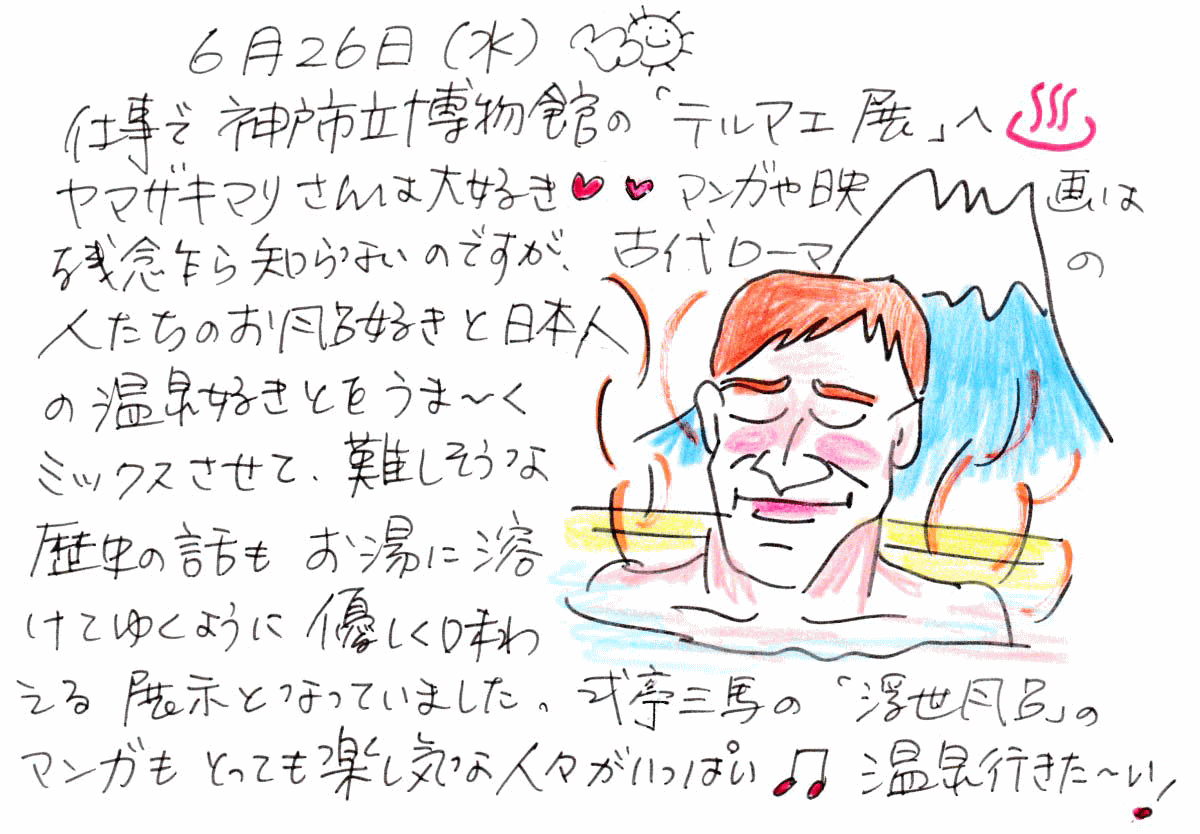 6月26日(水)
仕事で神戸市立博物館の「テルマエ展」へ
ヤマザキマリさんは大好き マンガや映画は
残念乍ら知らないのですが、古代ローマの
人たちのお風呂好きと日本人
の温泉好きとをうま〜く
ミックスさせて、難しそうな
歴史の話もお湯に溶
けてゆくように優しく味わ
える展示となっていました。式亭三馬の「浮世風呂」の
マンガもとっても楽し気な人々がいっぱい♫ 温泉行きた〜い!